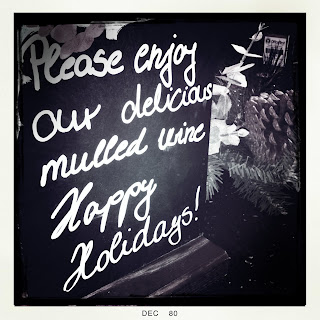 Please enjoy
our delicious
mulled wine
Happy
Holidays!
DEC 80